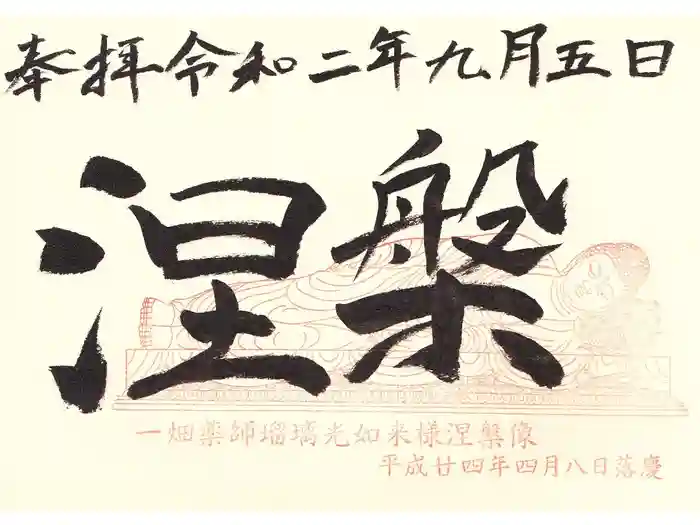 奉拝令和二年九月五日
涅槃
一畑薬師瑠璃光如来様涅槃像
平成廿四年四月八日落慶